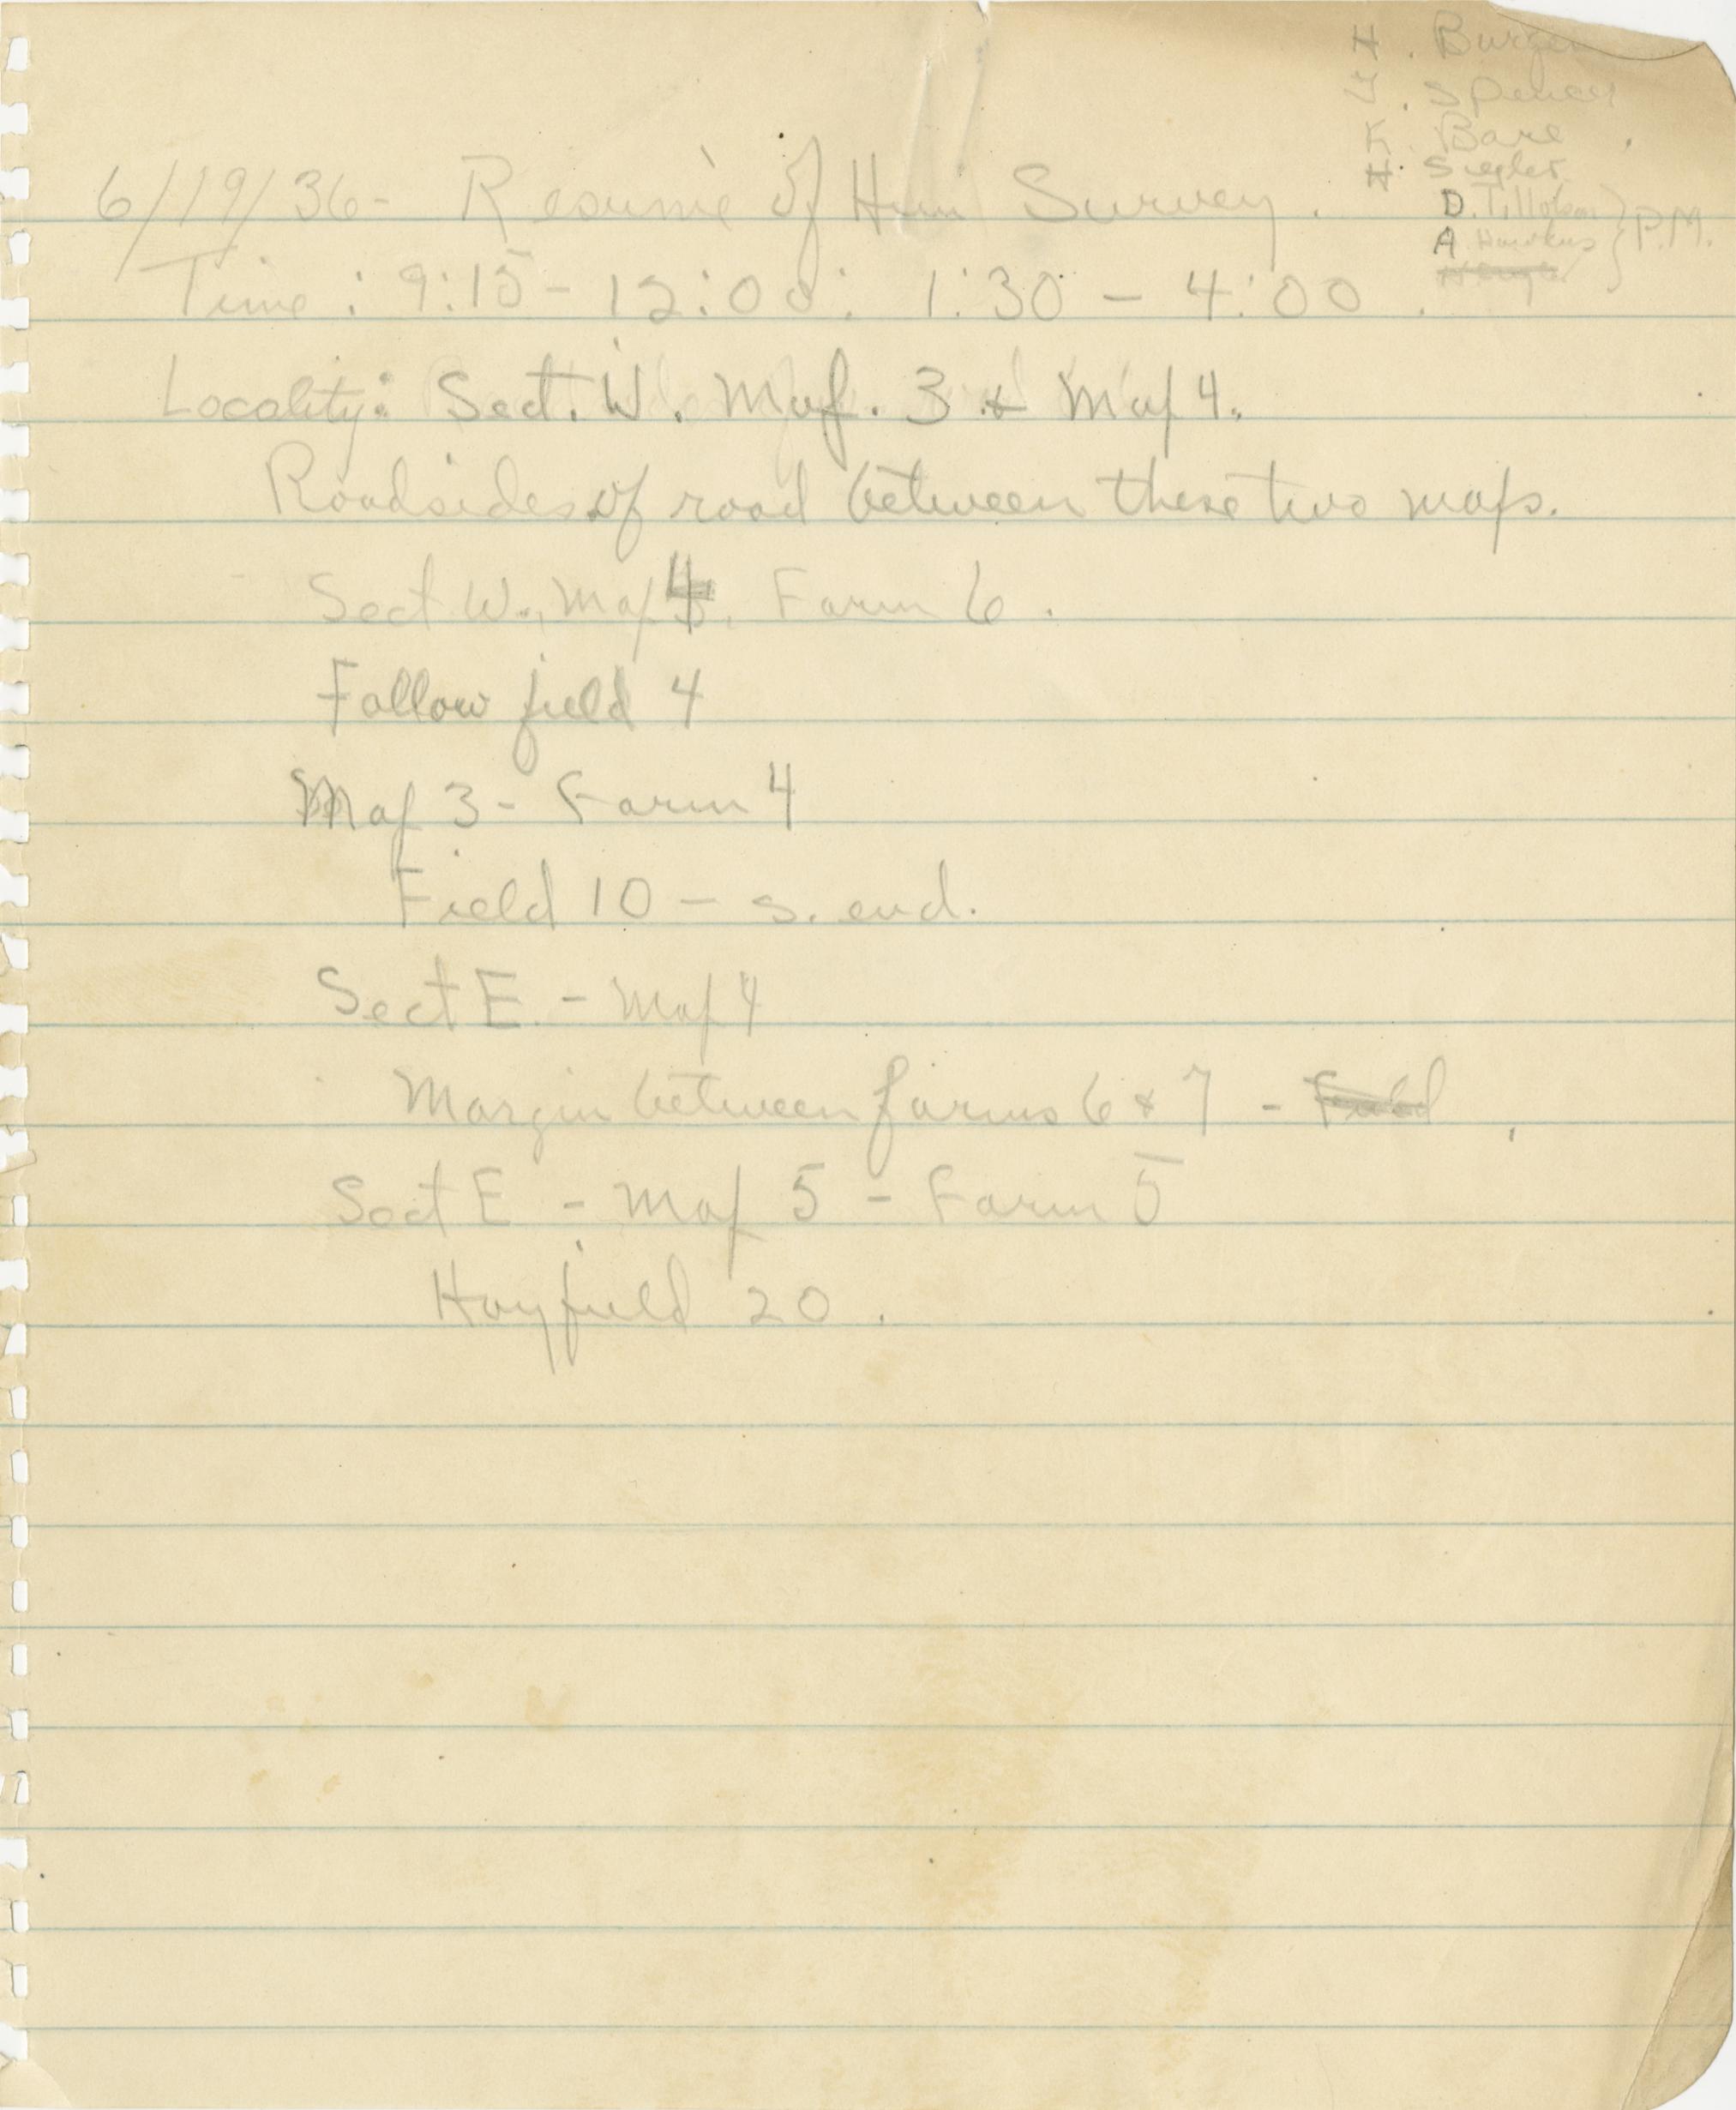 H. Burger
J. Spencer
K. Bare
H. Siegler
D. Tillotson } P.M.
A Hawkins
6/19/36- Resumé of Survey.
Time: 9:15 - 12:00; 1:30 - 4:00.
Locality: Sect. W. Map. 3 & Map 4.
Roadsides of road between these two maps.
Sect W., Map 4, Farm 6.
Fallow field 4
Map 3 - Farm 4
Field 10 - s. end.
Sect E. - Map 4
Margin between farms 6 & 7 - Field
Sect E - Map 5 - Farm 5
Hayfield 20.